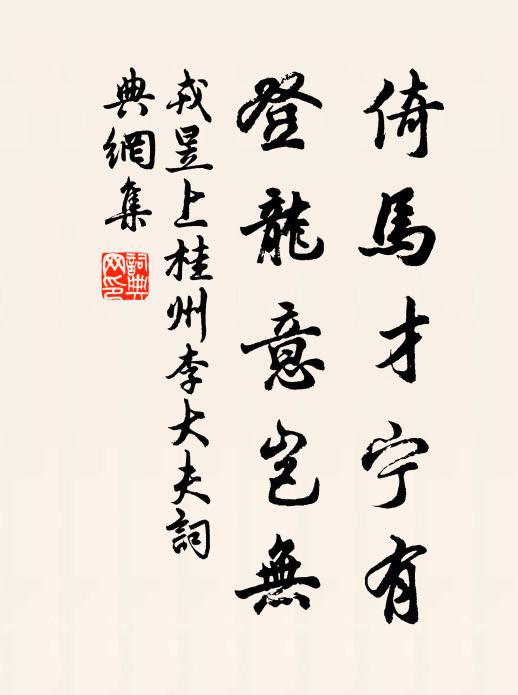 倚馬才宁有
登龍意岂無
戎昱上桂州李大夫詞
典網集
詞典
网印